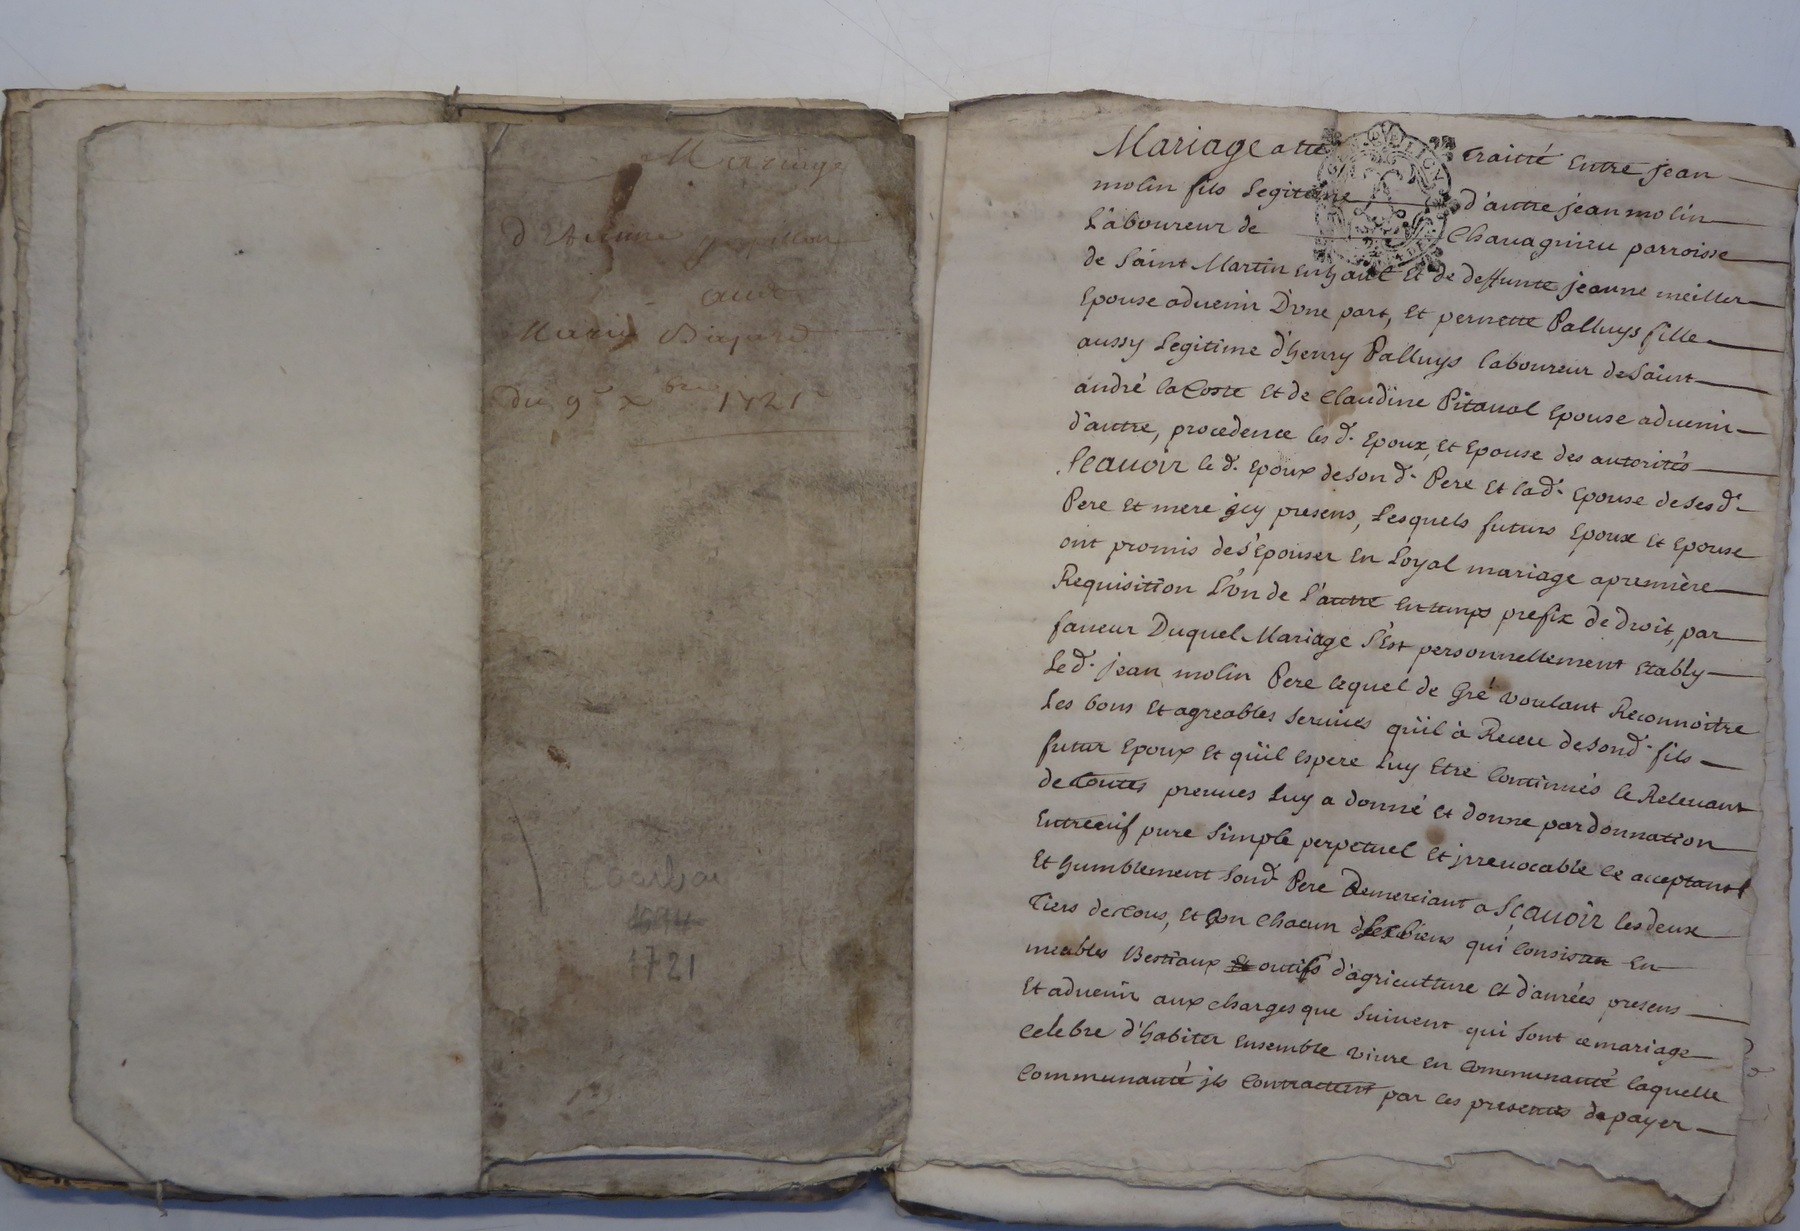 Mariage
d'Etienne
avec
Marie
du 9e xbre 1721
1694
1721
Mariage a été traitté Entre jean
molin fils Legitime d'autre jean molin
Laboureur de Chavagnieu parroisse
de Saint Martin Enhaut Et de deffunte jeanne meiller
Epouse advenir D'vne part, Et pernette Palluys fille
aussy Legitime d'henry Palluys laboureur de Saint
andré la Coste Et de Claudine Pitaval Epouse advenir
d'autre, procedence les d. Epoux, Et Epouse des autorités
Scavoir le d. Epoux de son d. Pere Et la d. Epouse de ses d.
Pere Et mere jcy presens, Lesquels futurs Epoux Et Epouse
ont promis de s'Epouser En Loyal mariage a première
Requisition L'vn de L'autre En temps prefix de droit, par
faveur Duquel Mariage S'Est personnellement Etably
Le d. jean molin Pere lequel de Gré voulant Reconnoitre
Les bons Et agreables Services qu'il à Receu de son d. fils
futur Epoux Et qu'il Espere Luy Etre Continués le Relevant
de toutes preuves Luy a donné Et donne par donnation
Entrevif pure Simple perpetuel Et jrrevocable le acceptant
Et humblement son d. Pere Remerciant a Scavoir les deux
Tiers de tous, Et Con Chacun Biens qui Consistent En
meubles Bestiaux Et outils d'agriculture Et d'anrées presens
Et advenir aux charges que Suivent qui Sont ce mariage
Celebre d'habiter Ensemble vivre En Communauté laquelle
Communauté jls Contractent par Ces presentes de payer